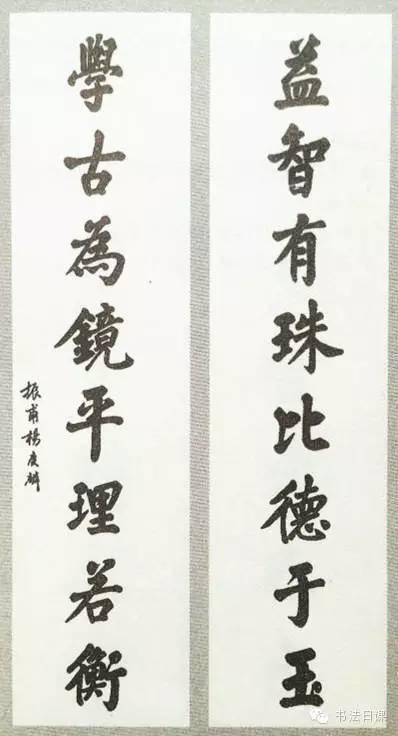 益智有珠比德于玉
學古為鏡平理若衡
振甫楊慶麟
书法日课